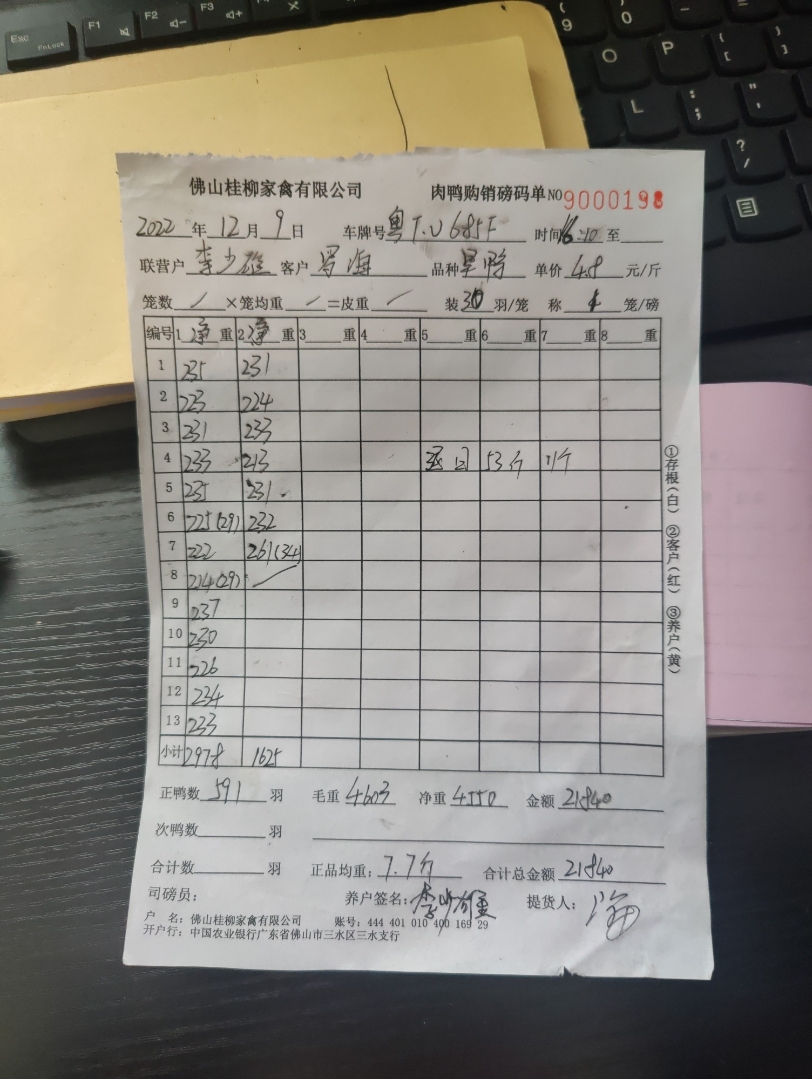 佛山桂柳家禽有限公司 肉鸭购销磅码单 NO 9000198
2022年12月9日 车牌号 粤T.U685F 时间 16:10 至
联营户 李少雄 客户 海 品种 旱鸭 单价 4.8 元/斤
笼数 / ×笼均重 / =皮重 / 装 30 羽/笼 称 1 笼/磅
编号 1 净 重 2 净 重 3 重 4 重 5 重 6 重 7 重 8 重
1 235 231
2 223 224
3 231 233
4 233 213 53斤
5 235 231
6 225(29) 232
7 222 261(34)
8 214(29)
9 237
10 230
11 226
12 234
13 233
小计 2978 1625
正鸭数 591 羽 毛重 4603 净重 4550 金额 21840
次鸭数 羽
合计数 羽 正品均重: 7.7斤 合计总金额 21840
司磅员: 养户签名: 李少雄 提货人: 海
户 名: 佛山桂柳家禽有限公司 账号: 444 401 010 400 169 29
开户行: 中国农业银行广东省佛山市三水区三水支行
①存根(白) ②客户(红) ③养户(黄)
Esc
FnLock
F1
F2
F3
F4
(
9
)
0
O
P
L